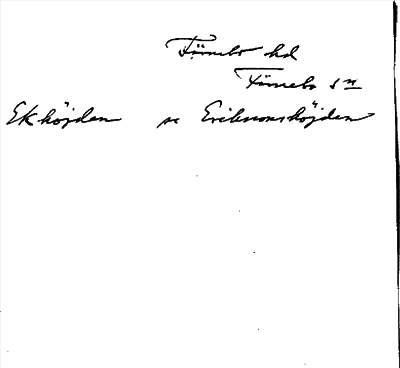 Färnebo hd
Färnebo sn
Ekhöjden se Erikssonshöjden